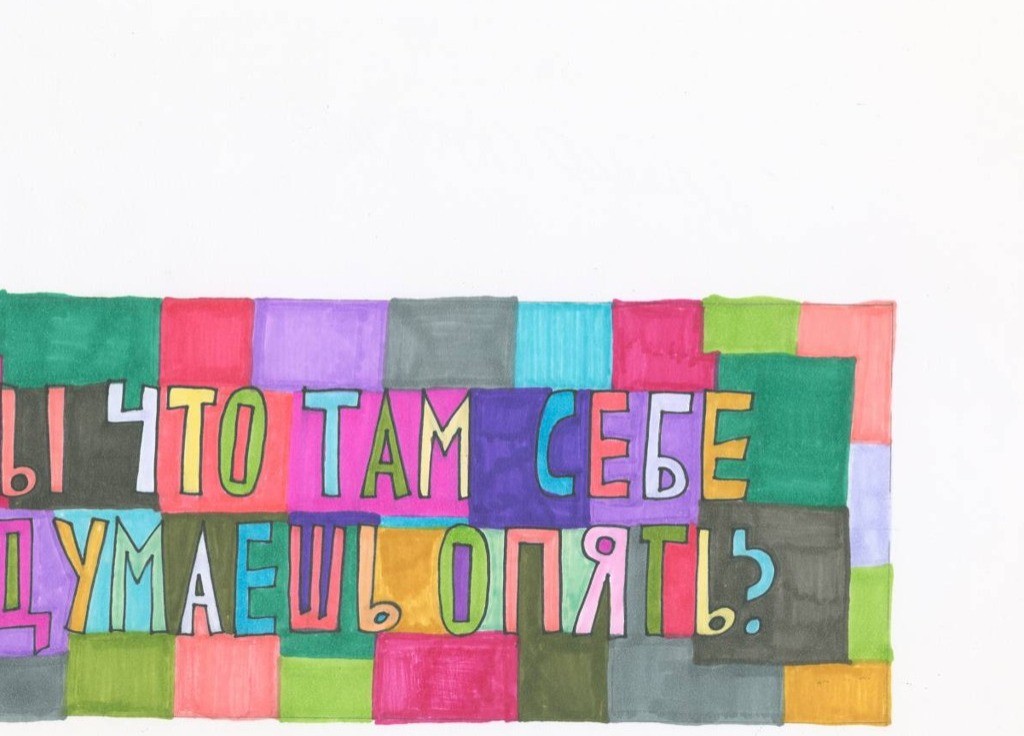 Ы ЧТО ТАМ СЕБЕ
ДУМАЕШЬ ОПЯТЬ?